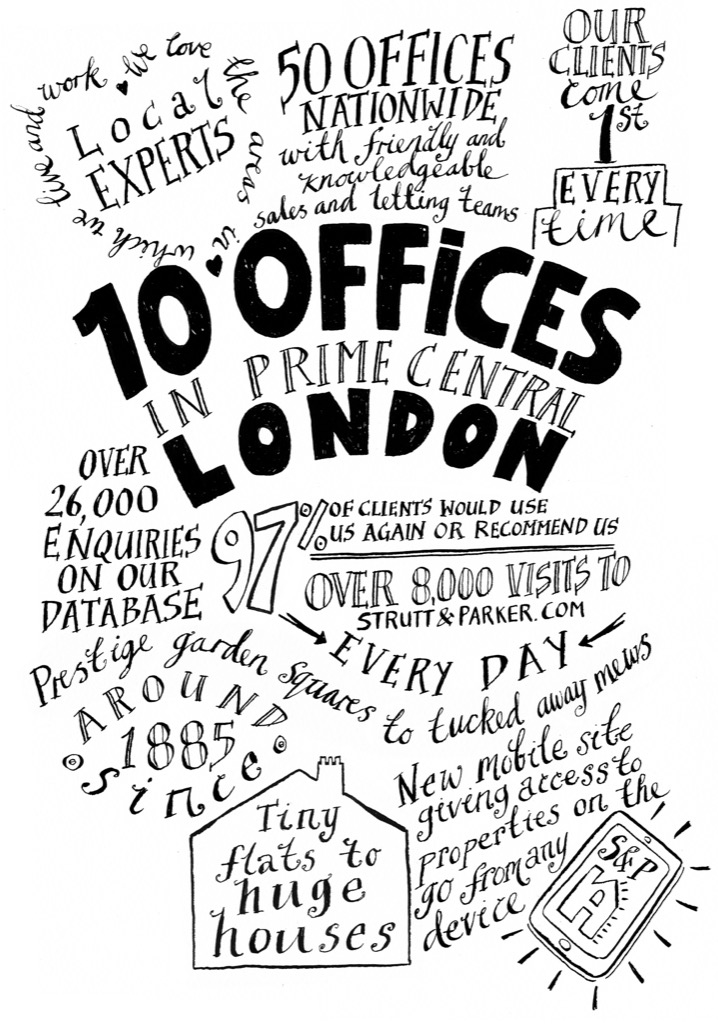 we love the areas in which we live and work
Local
EXPERTS
50 OFFICES
NATIONWIDE
with friendly and
knowledgeable
sales and letting teams
OUR
CLIENTS
come
1st
EVERY
time
10 OFFiCES
IN PRIME CENTRAL
LONDON
OVER
26,000
ENQUIRIES
ON OUR
DATABASE
97%
OF CLIENTS WOULD USE
US AGAIN OR RECOMMEND US
OVER 8,000 VISITS TO
STRUTT&PARKER.COM
EVERY DAY
Prestige garden squares to tucked away mews
AROUND
since
1885
Tiny
flats to
huge
houses
New mobile site
giving access to
properties on the
go from any
device
S&P